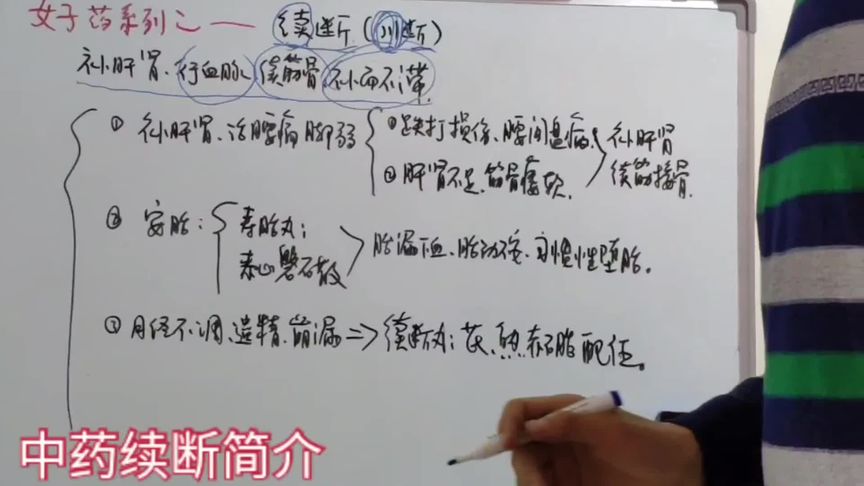 女子药系列之一 续断(川断)
补肝肾、行血脉、续筋骨、补而不滞
① 补肝肾、治腰痛脚弱
①跌打损伤、腰间盘病、
②肝肾不足、筋骨痿软
补肝肾
续筋接骨
② 安胎:
寿胎丸;
泰山磐石散
胎漏下血、胎动不安、习惯性堕胎。
③ 月经不调、遗精、崩漏 => 续断丸; 芪、熟、赤石脂配伍。
中药续断简介